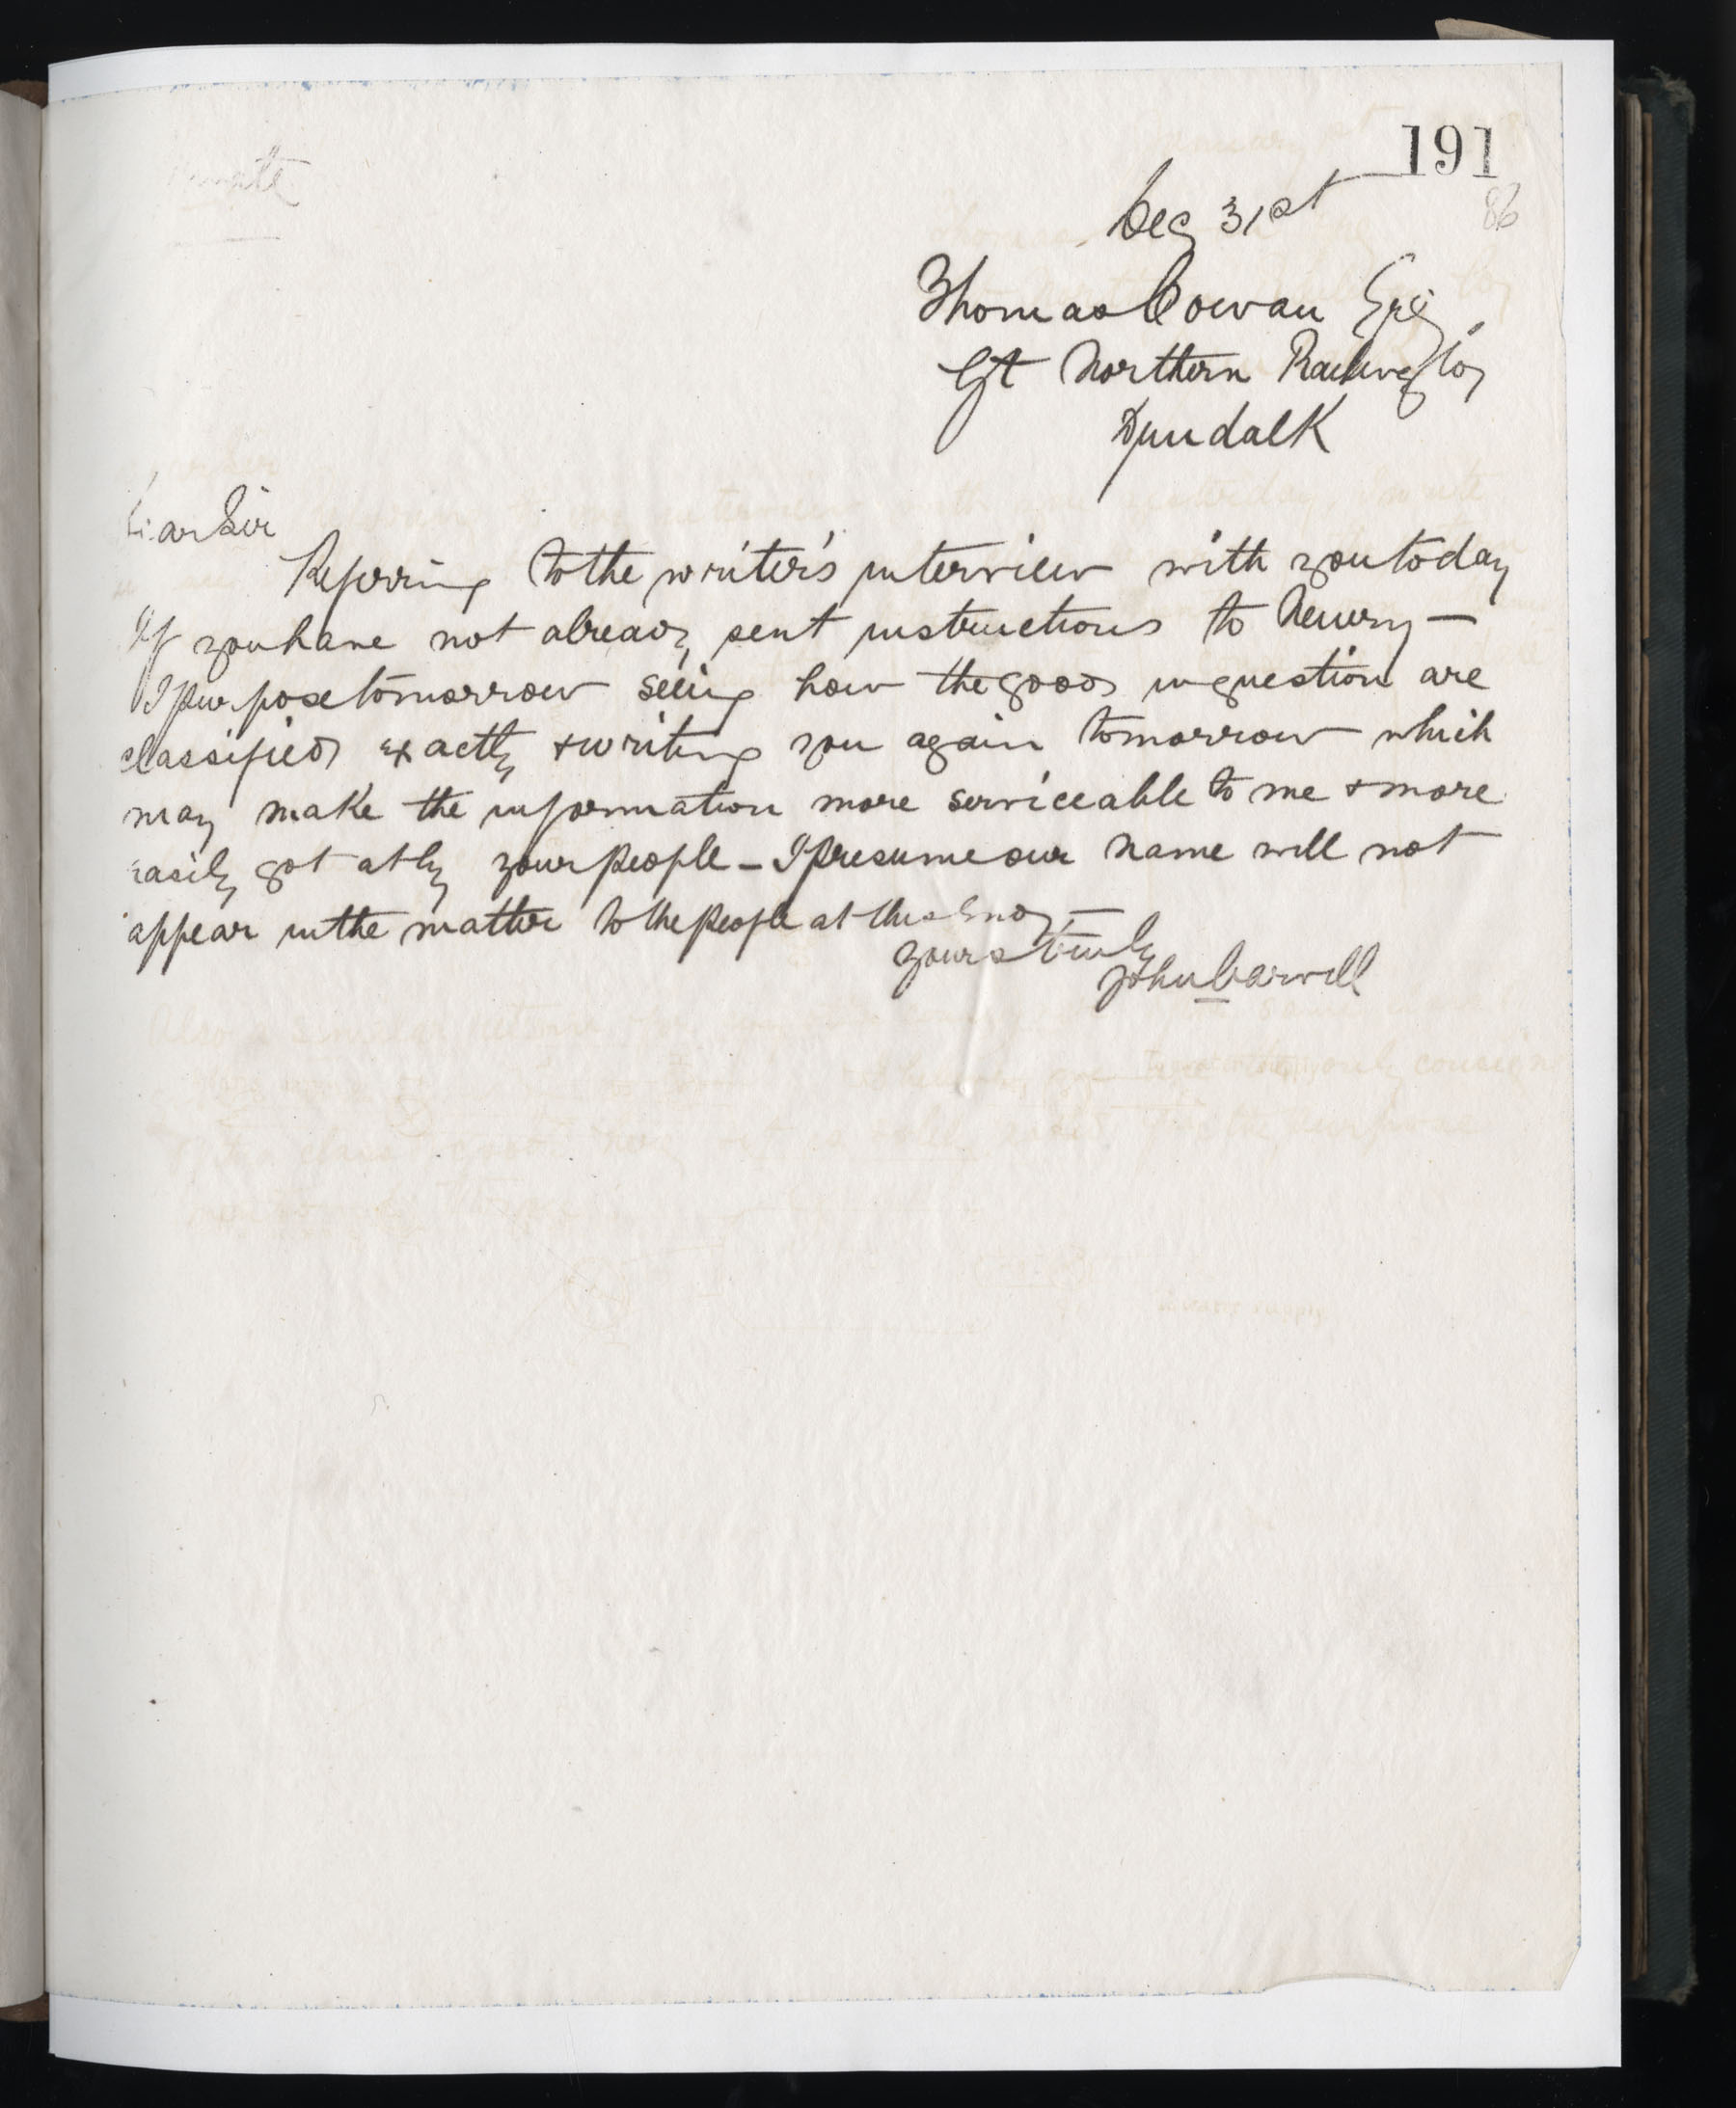 191
Private
Dec 31st 86
Thomas Cowan Esq,
Gt Northern Railway Coy
Dundalk
Dear Sir
Referring to the writer's interview with you today
If you have not already sent instructions to Newry —
I purpose tomorrow seeing how the goods in question are
classified exactly & writing you again tomorrow which
may make the information more serviceable to me & more
easily got at by your people — I presume our name will not
appear in the matter to the people at this end —
Yours truly
John Carvill